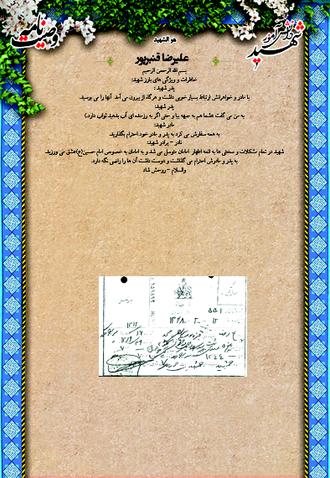 هو الشهید
وصیت نامه
شهید
دانش آموز
علیرضا قنبرپور
بسم الله الرحمن الرحیم
خاطرات و ویژگی های بارز شهید:
پدر شهید :
با مادر و خواهرانش ارتباط بسیار خوبی داشت و هرگاه از بیرون می آمد آنها را می بوسید.
پدر شهید:
به من می گفت حتما هم به جبهه بیا و حتی اگر به رزمنده ای آب بدهید ثواب دارد.
مادر شهید:
به همه سفارش می کرد به پدر و مادر خود احترام بگذارید.
نادر - برادر شهید:
شهید در تمام مشکلات و سختی ها به ائمه اطهار امامان متوسل می شد و به امامان به خصوص امام حسین(ع)عشق می ورزید.
به پدر و مادرش احترام می گذاشت و دوست داشت آن ها را راضی نگه دارد.
والسلام - روحش شاد